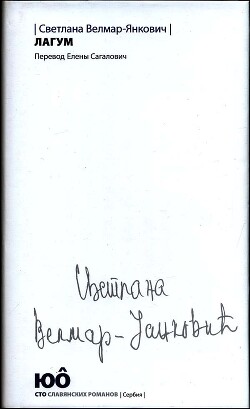 | Светлана Велмар-Янкович
| ЛАГУМ
Перевод Елены Сагалович
Светлана
Велмар-Јанковић
Юô
СТО СЛАВЯНСКИХ РОМАНОВ | Сербия |